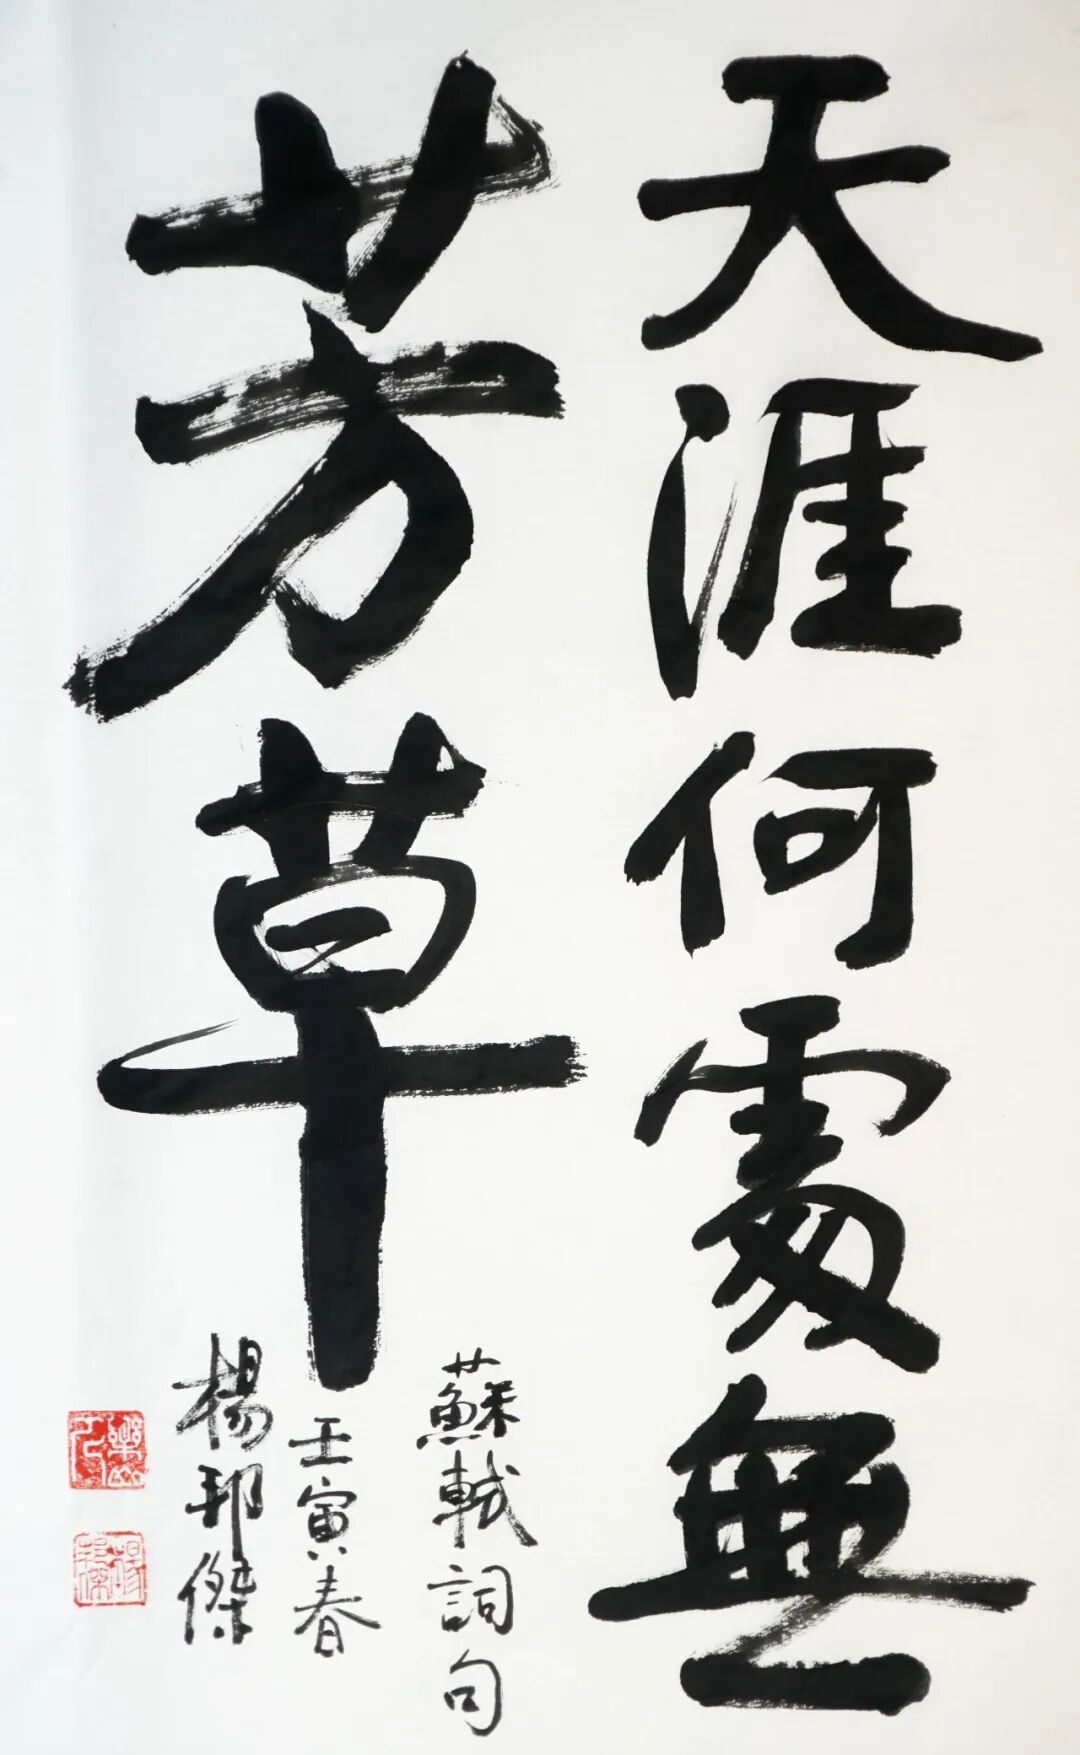 天涯何處無
芳草
蘇軾詞句
壬寅春
楊邦傑
楊邦傑